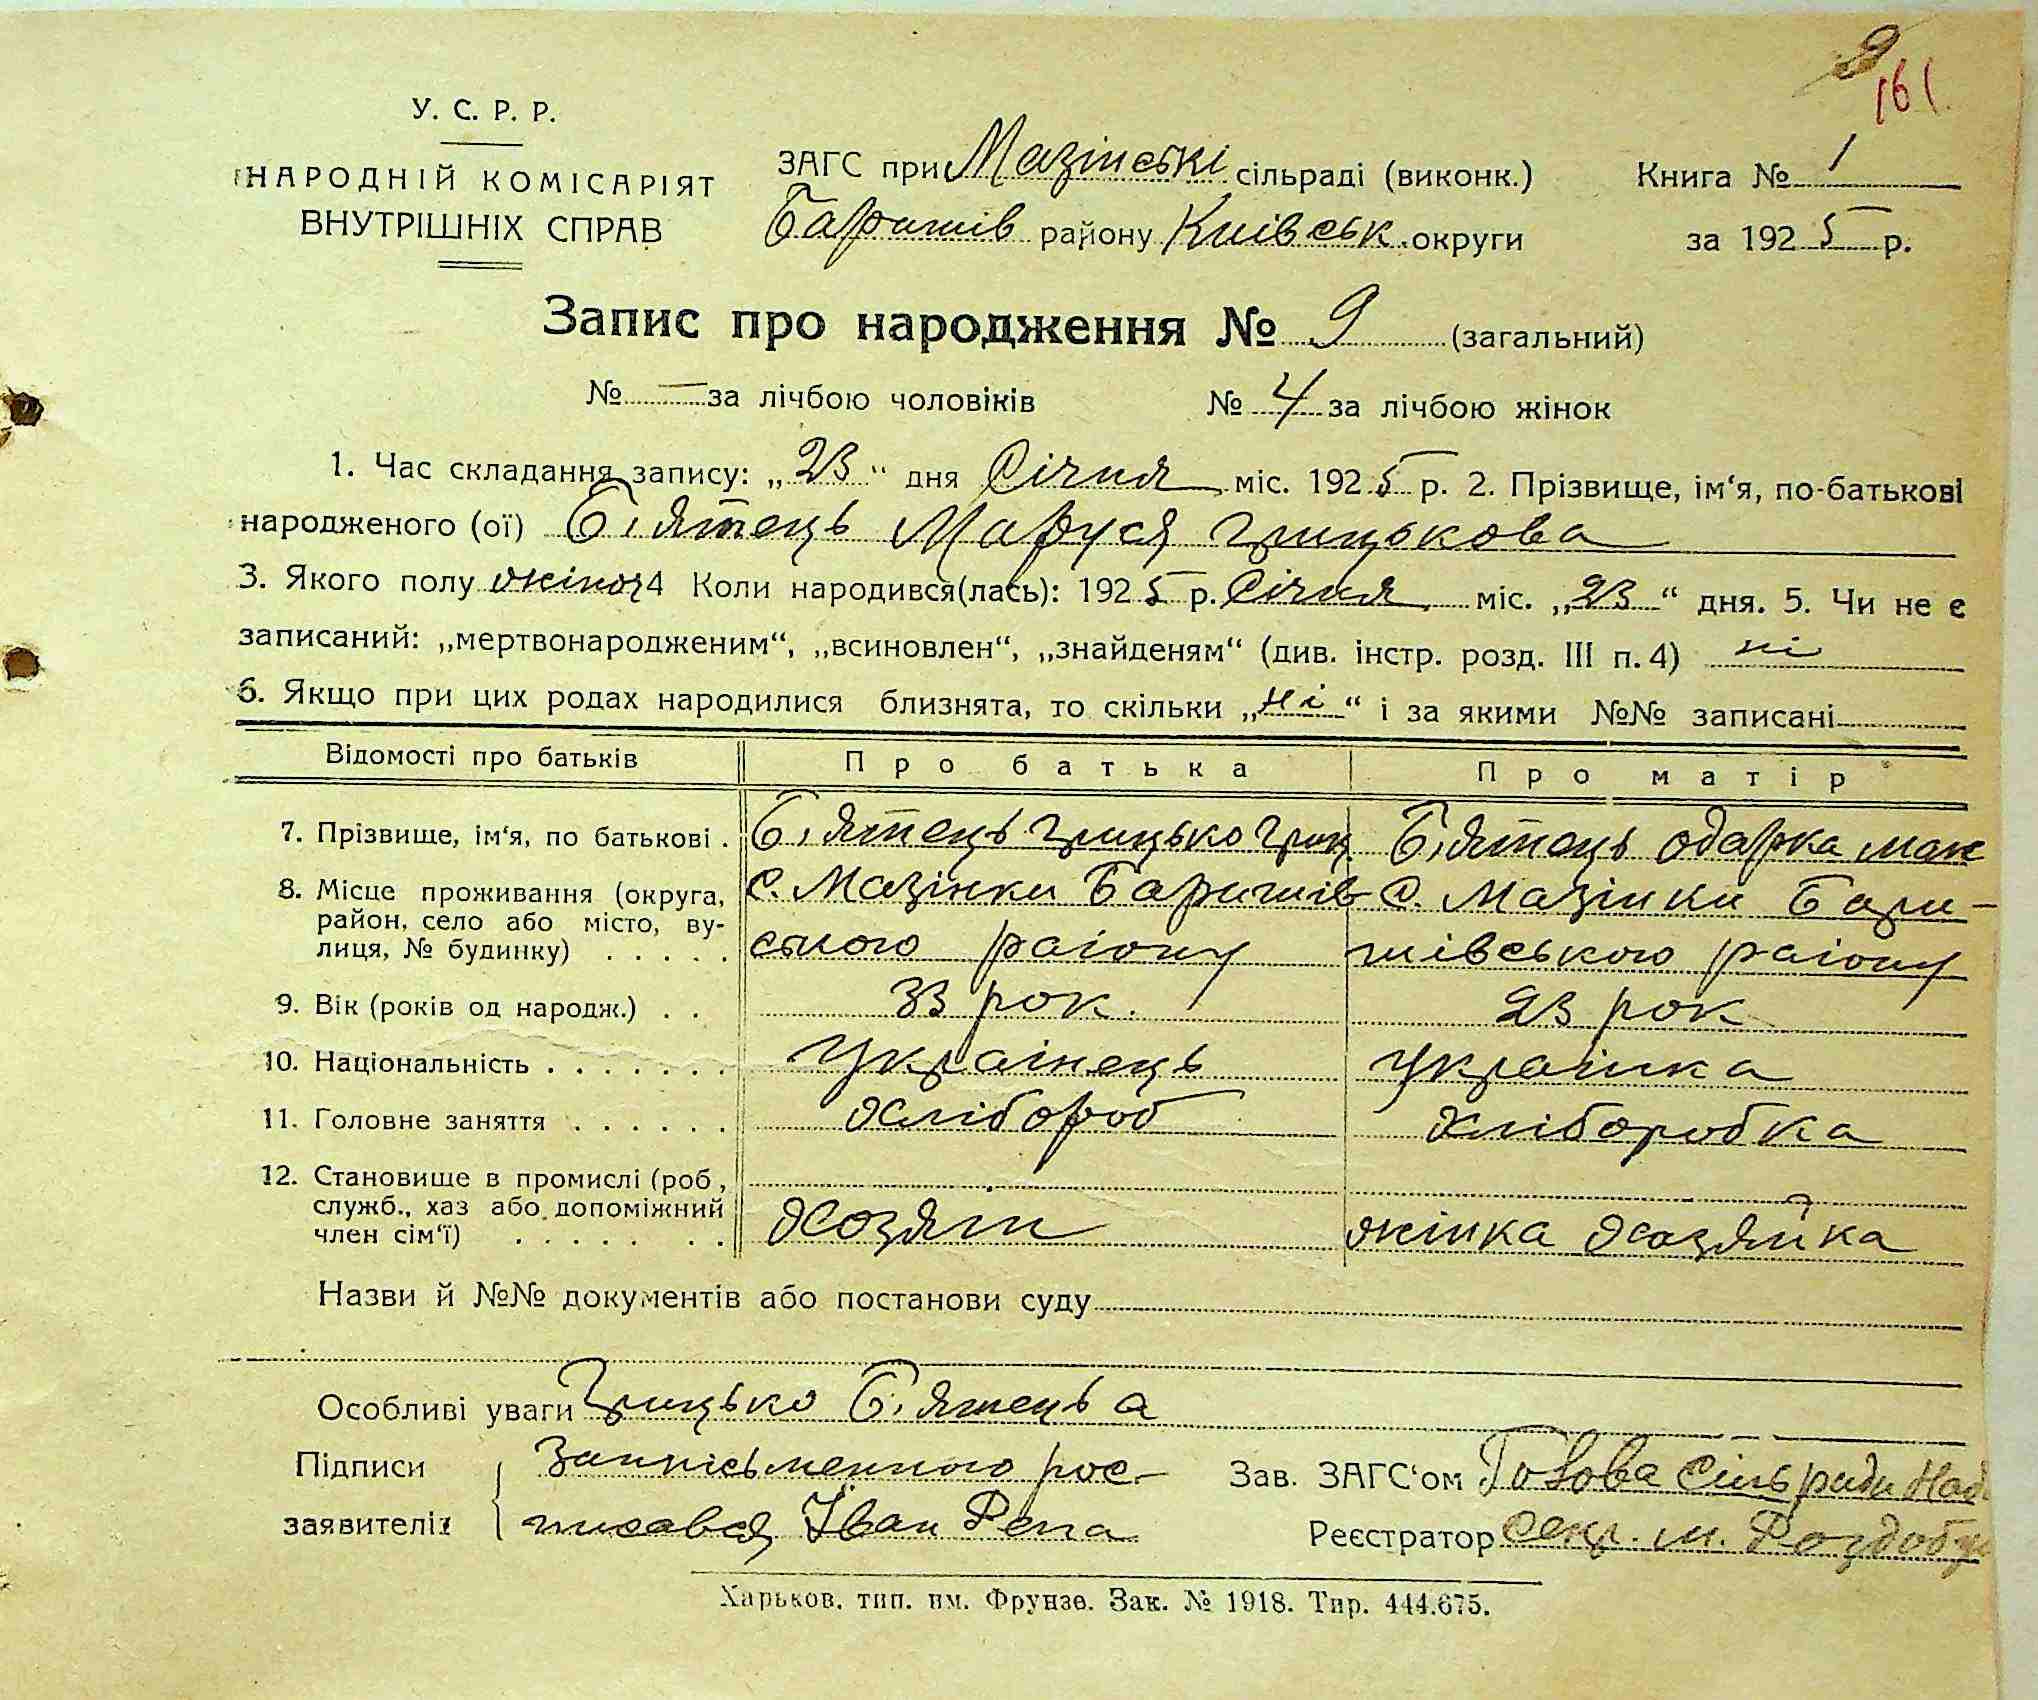 9
161
У. С. Р. Р.
НАРОДНІЙ КОМІСАРІЯТ
ВНУТРІШНІХ СПРАВ
ЗАГС при Мазінські сільраді (виконк.)
Баришів району Київськ. округи
Книга № 1
за 1925 р.
Запис про народження № 9 (загальний)
№ — за лічбою чоловіків № 4 за лічбою жінок
1. Час складання запису: „23" дня Січня міс. 1925 р. 2. Прізвище, ім'я, по-батькові
народженого (ої) Б,ятець Маруся Грицькова
3. Якого полу жіноч 4 Коли народився(лась): 1925 р. Січня міс. „23" дня. 5. Чи не є
записаний: „мертвонародженим", „всиновлен", „знайденям" (див. інстр. розд. III п. 4) ні
6. Якщо при цих родах народилися близнята, то скільки „ні" і за якими №№ записані
Відомості про батьків Про батька Про матір
7. Прізвище, ім'я, по батькові . Б,ятець Грицько Гриц. Б,ятець Одарка Мак
8. Місце проживання (округа, район, село або місто, вулиця, № будинку) . . . . .
с. Мазінки Баришів с. Мазінки Бари-
ського раіону шівського раіону
9. Вік (років од народж.) . . 33 рок. 23 рок
10. Національність . . . . . . . Украінець Украінка
11. Головне заняття . . . . . . Хлібороб Хліборобка
12. Становище в промислі (роб, служб., хаз або допоміжний член сім'ї) . . . . . . .
Хозяін жінка хозяйка
Назви й №№ документів або постанови суду
Особливі уваги Грицько Б,ятець а
Підписи заявителів
За нписьменного рос-
писався Іван Репа
Зав. ЗАГС'ом Голова Сільради
Реєстратор Секр. М. Роздобу
Харьков. тип. им. Фрунзе. Зак. № 1918. Тир. 444.675.